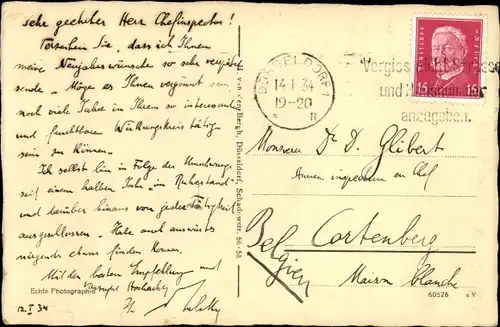 Sehr geehrter Herr Chefinspector!
Verzeihen Sie, dass ich Ihnen
meine Neujahrswünsche so sehr verspätet
sende. Möge es Ihnen vergönnt sein,
noch viele Jahre in Ihrem so interessanten
und fruchtbaren Wirkungskreis tätig
sein zu können.
Ich selbst bin in Folge der Umwälzung
seit einem halben Jahr "im Ruhestand"
und darüber hinaus von jeder Tätigkeit
ausgeschlossen. Habe auch auswärts
nirgends etwas finden können.
Mit den besten Empfehlung und
Hochachtg
12. I 34
Echte Photographie
v. d. Bergh, Düsseldorf, Schadowstr. 56-58
DÜSSELDORF 1
14.1.34
19-20
* n
Vergiss nicht Strasse
und Hausnummer
anzugeben.
15 15
Monsieur Dr D. Glibert
inspecteur en Chef
Cortenberg
Belgien
Maison blanche
60526